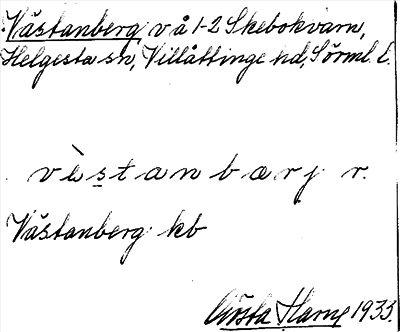 Västanberg, v å 1-2 Skebokvarn,
Helgesta sn, Villåttinge hd, Sörml. l.
vèstanbærj r.
Västanberg kb
Gösta 1933.